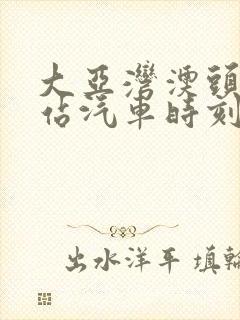 大亞灣澳頭
佔汽車時刻
出水洋平 填輪